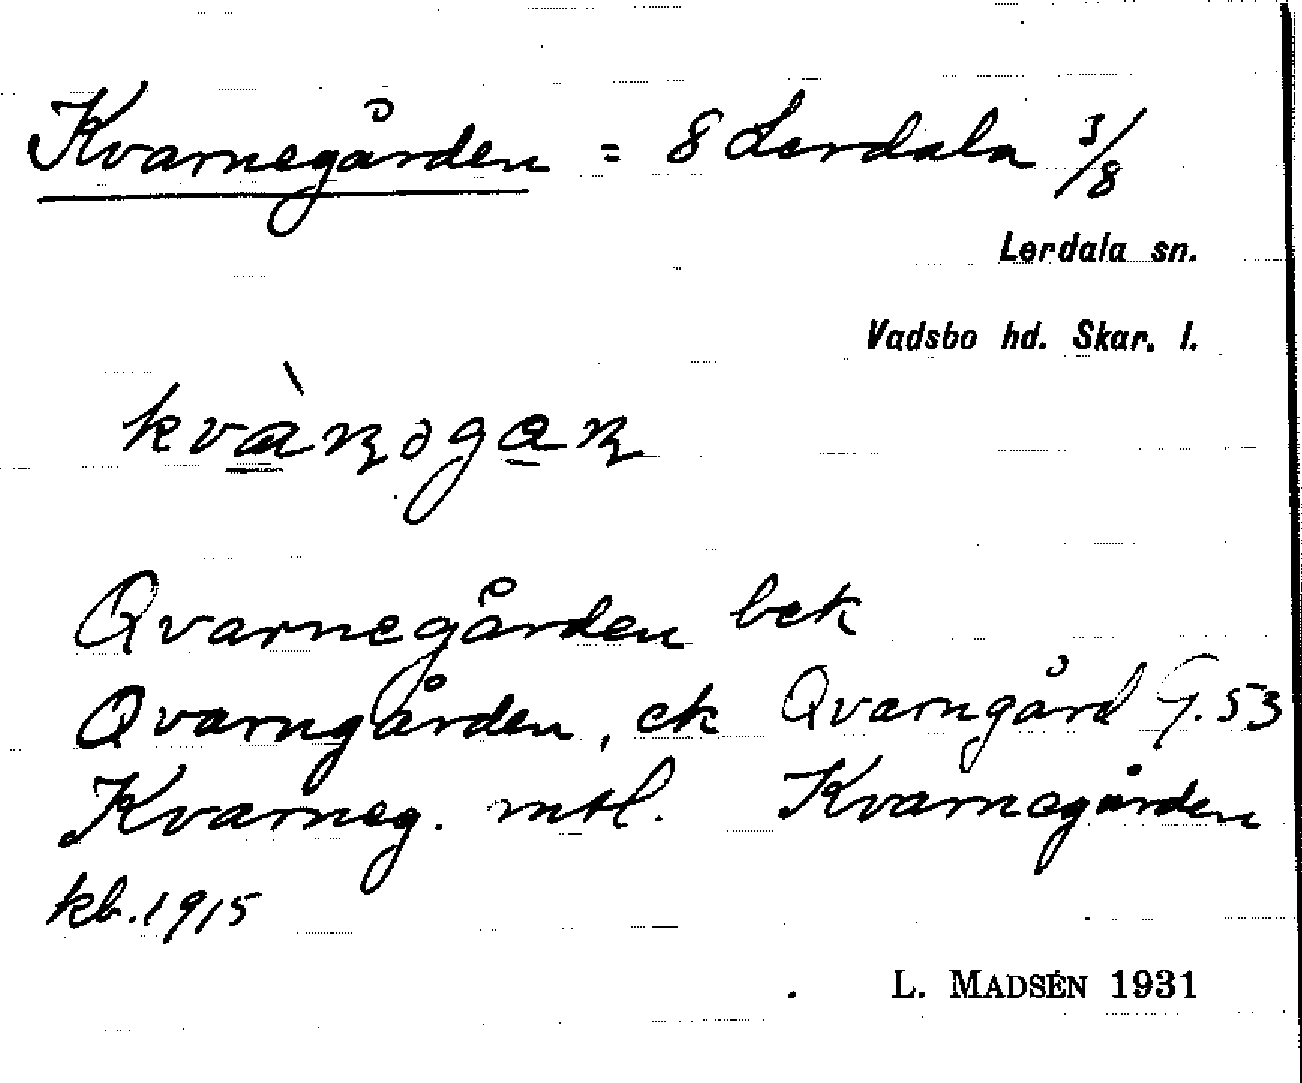 Kvarnegården = 8 Lerdala 3/8
Lerdala sn.
Vadsbo hd. Skar. l.
Qvarnegården bek
Qvarngården, ek Qvarngård G. 53
Kvarneg. mtl. Kvarnegården
kb. 1915
L. MADSÉN 1931